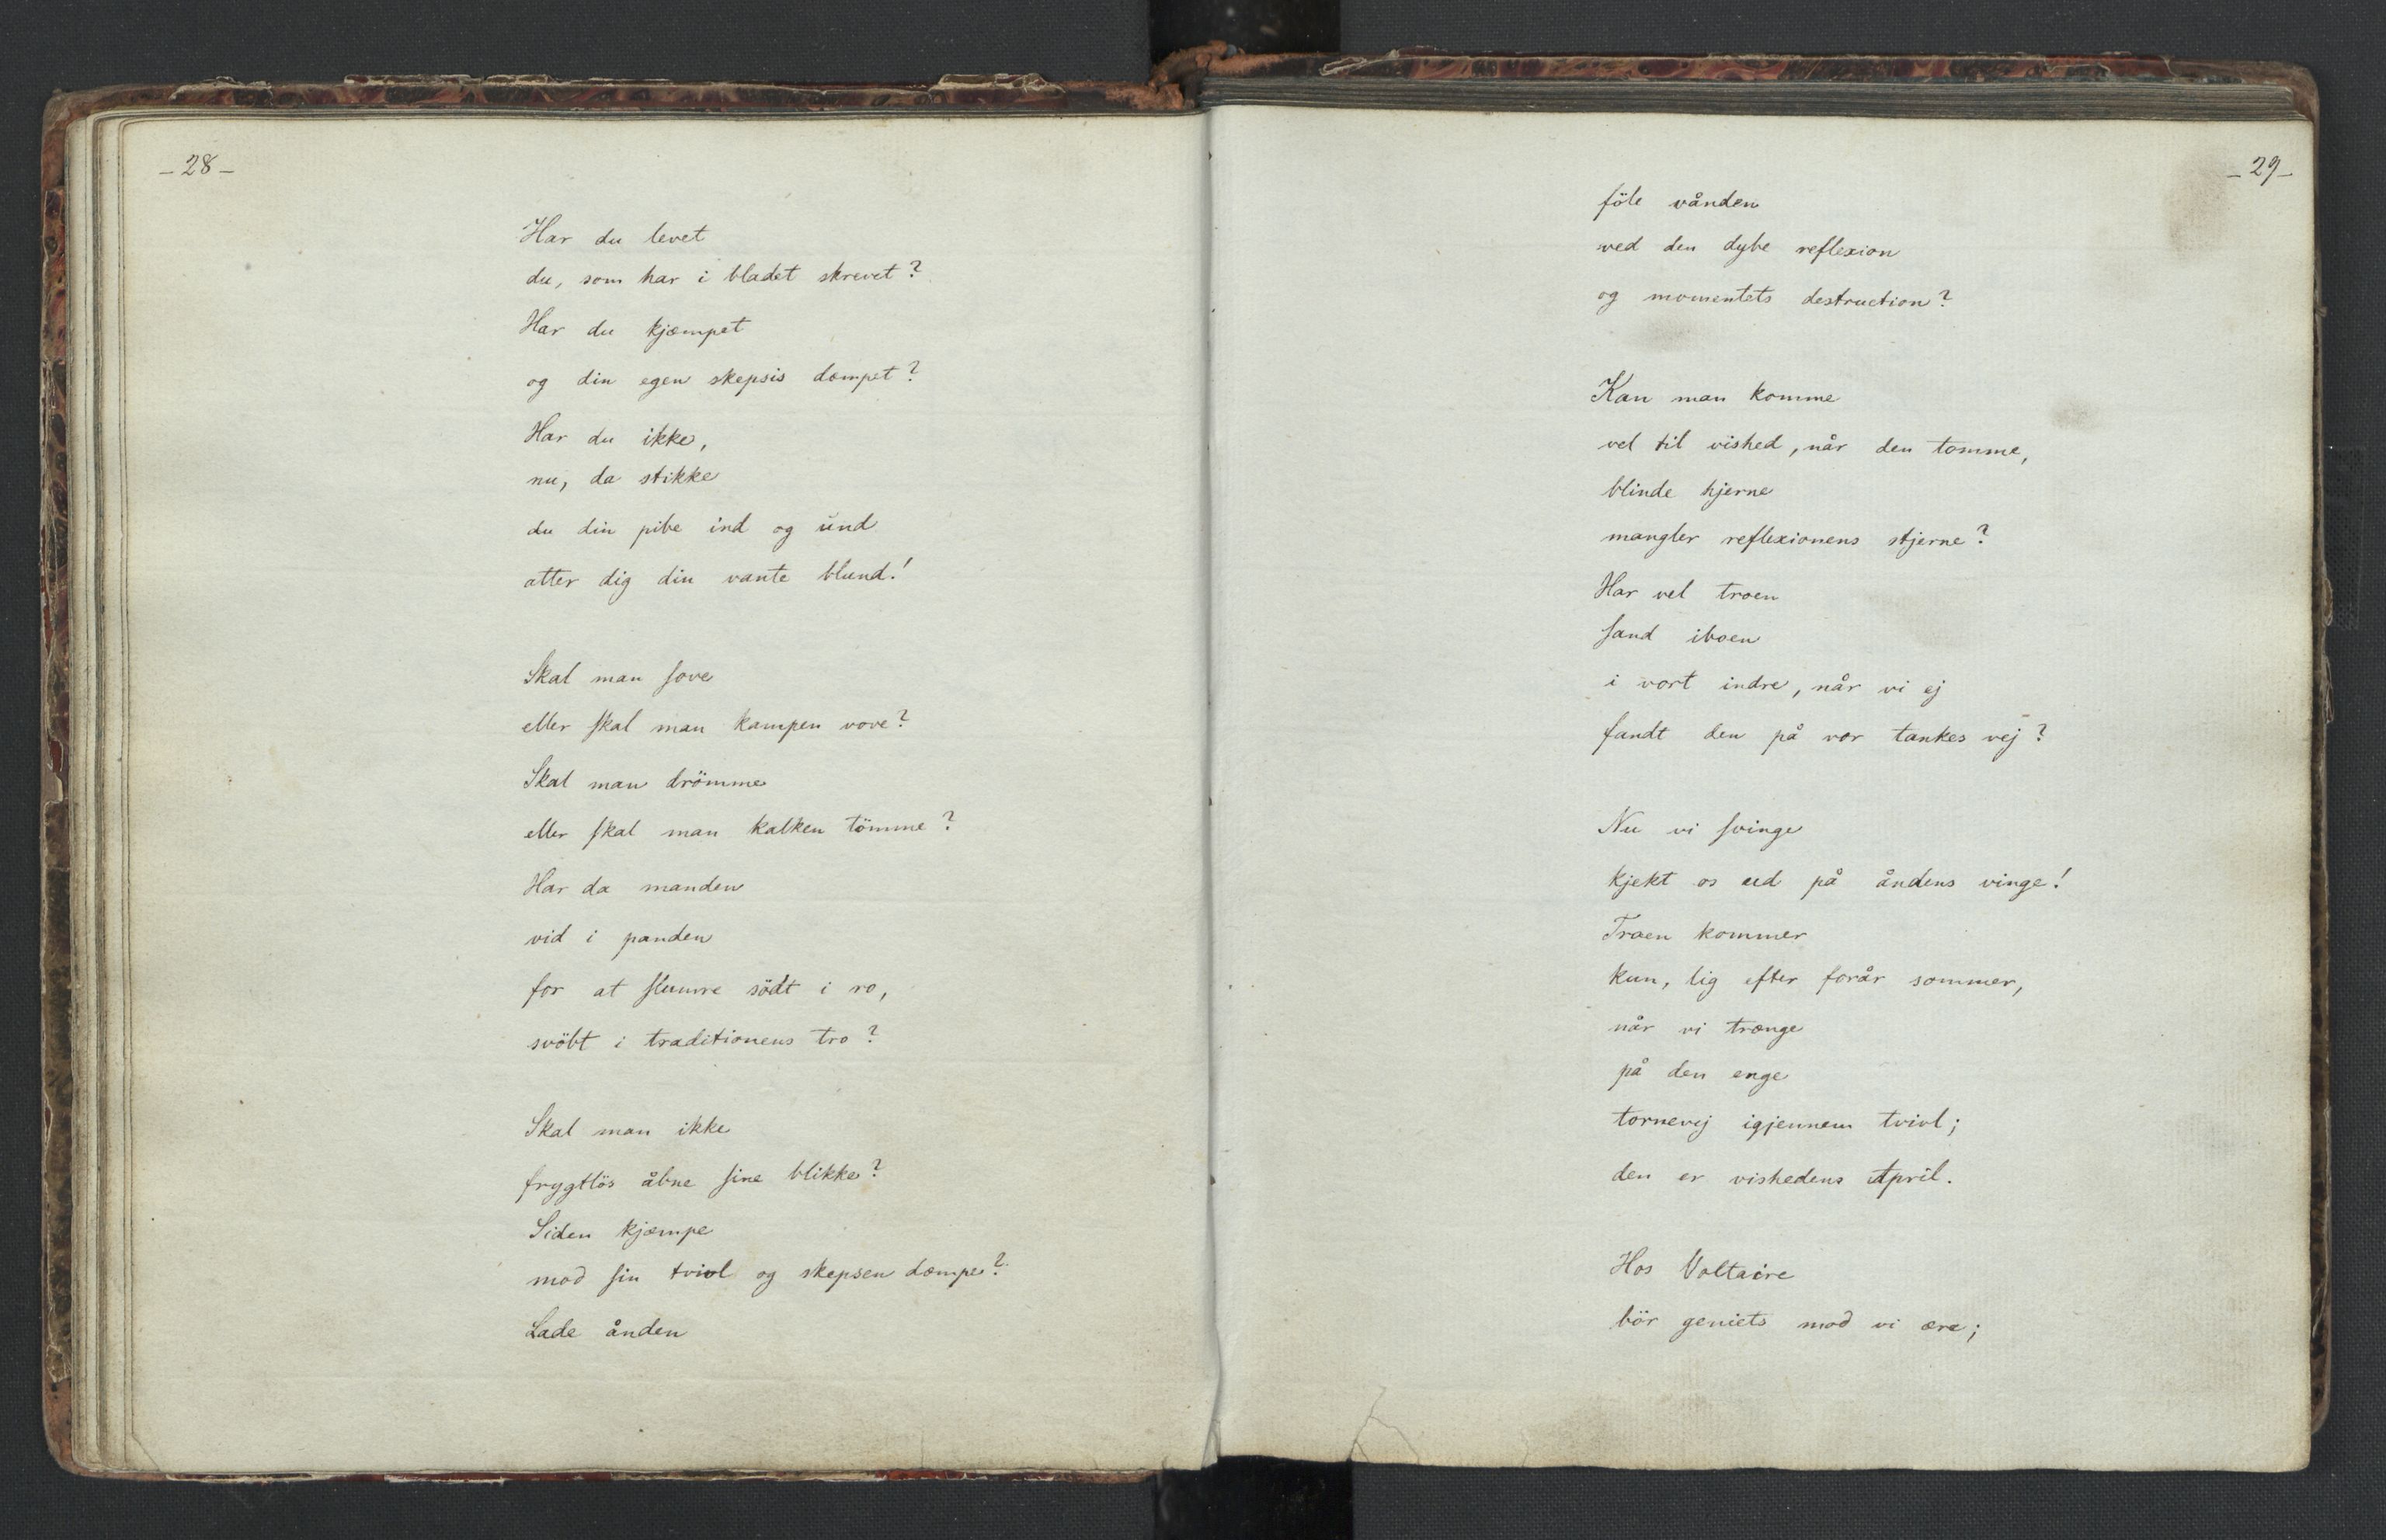 - 28 -
Har du levet
du, som har i bladet skrevet?
Har du kjæmpet
og din egen skepsis dæmpet?
Har du ikke,
nu, da stikke
du din pibe ind og ŭnd
atter dig din vante blund!
Skal man sove
eller skal man kampen vove?
Skal man drömme
eller skal man kalken tömme?
Har da manden
vid i panden
for at slumre södt i ro,
svöbt i traditionens tro?
Skal man ikke
frygtlös åbne sine blikke?
Siden kjæmpe
mod sin tvivl og skepsen dæmpe?
Lade ånden
- 29 -
föle vånden
ved den dybe reflexion
og momentets destruction?
Kan man komme
vel til vished, når den tomme,
blinde hjerne
mangler reflexionens stjerne?
Har vel troen
sand iboen
i vort indre, når vi ej
fandt den på vor tankes vej?
Nu vi svinge
kjekt os ud på åndens vinge!
Troen kommer
kun, lig efter forår sommer,
når vi trænge
på den enge
tornevej igjennem tvivl;
den er vishedens April.
Hos Voltaire
bör geniets mod vi ære;